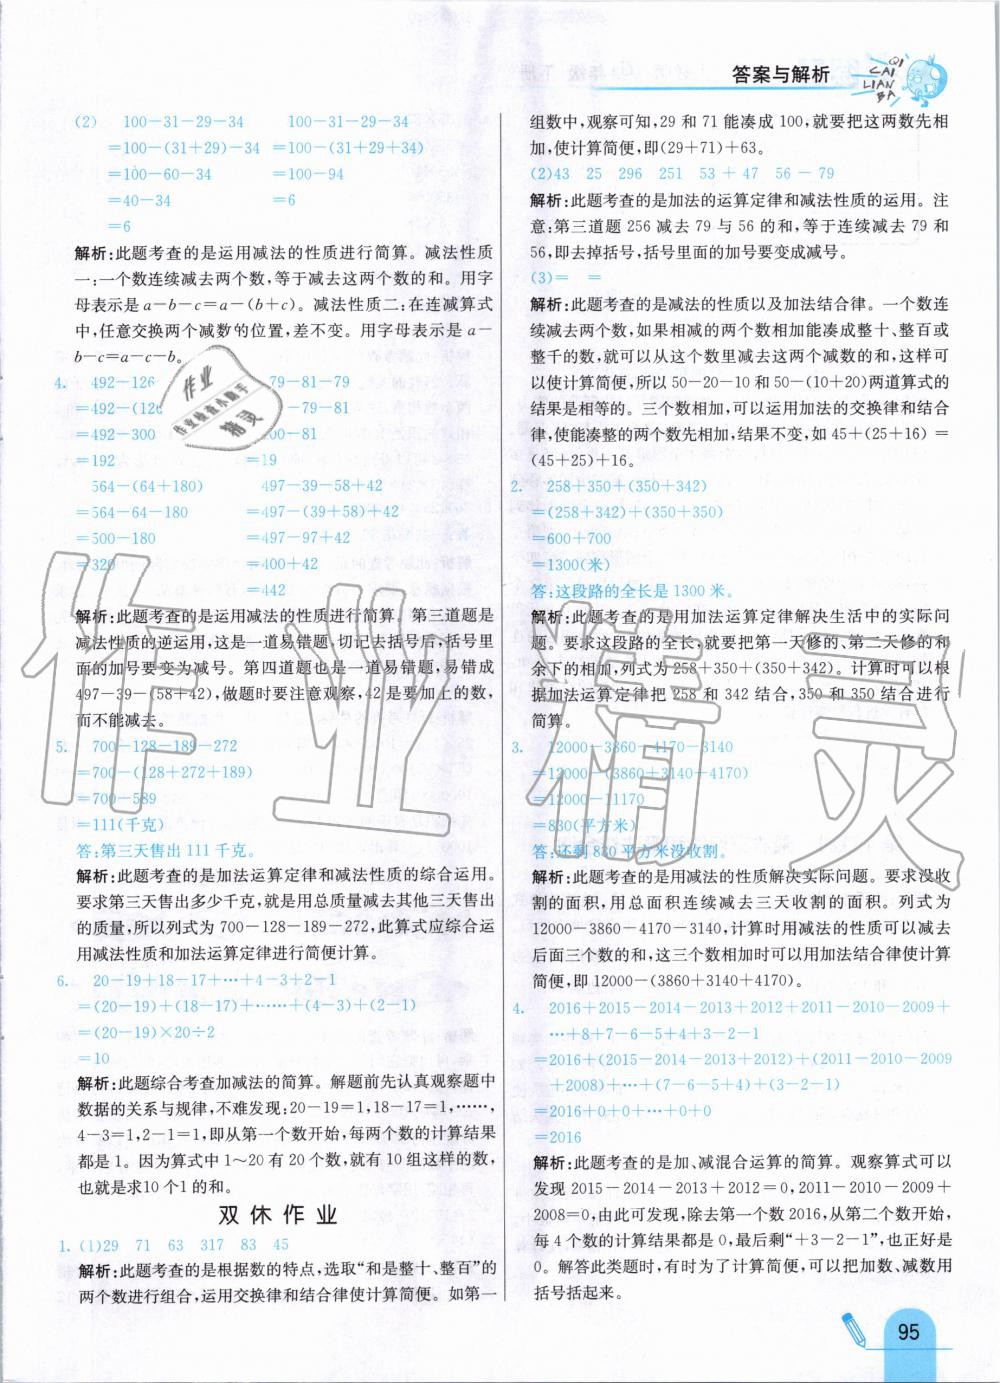 答案与解析
QI
CAI
LIAN
BA
(2) 100-31-29-34 100-31-29-34
=100-(31+29)-34 =100-(31+29+34)
=100-60-34 =100-94
=40-34 =6
=6
解析:此题考查的是运用减法的性质进行简算。减法性质
一:一个数连续减去两个数,等于减去这两个数的和。用字
母表示是a-b-c=a-(b+c)。减法性质二:在连减算式
中,任意交换两个减数的位置,差不变。用字母表示是a-
b-c=a-c-b。
4. 492-126 79-81-79
=492-(126 -79-81
=492-300 00-81
=192 =19
564-(64+180) 497-39-58+42
=564-64-180 =497-(39+58)+42
=500-180 =497-97+42
=320 =400+42
=442
解析:此题考查的是运用减法的性质进行简算。第三道题是
减法性质的逆运用,这是一道易错题,切记去括号后,括号里
面的加号要变为减号。第四道题也是一道易错题,易错成
497-39-(58+42),做题时要注意观察,42是要加上的数,
而不能减去。
5. 700-128-189-272
=700-(128+272+189)
=700-589
=111(千克)
答:第三天售出111千克。
解析:此题考查的是加法运算定律和减法性质的综合运用。
要求第三天售出多少千克,就是用总质量减去其他三天售出
的质量,所以列式为700-128-189-272,此算式应综合运
用减法性质和加法运算定律进行简便计算。
6. 20-19+18-17+…+4-3+2-1
=(20-19)+(18-17)+……+(4-3)+(2-1)
=(20-19)×20÷2
=10
解析:此题综合考查加减法的简算。解题前先认真观察题中
数据的关系与规律,不难发现:20-19=1,18-17=1,……,
4-3=1,2-1=1,即从第一个数开始,每两个数的计算结果
都是1。因为算式中1~20有20个数,就有10组这样的数,
也就是求10个1的和。
双休作业
1. (1)29 71 63 317 83 45
解析:此题考查的是根据数的特点,选取“和是整十、整百”的
两个数进行组合,运用交换律和结合律使计算简便。如第一
组数中,观察可知,29和71能凑成100,就要把这两数先相
加,使计算简便,即(29+71)+63。
(2)43 25 296 251 53+47 56-79
解析:此题考查的是加法的运算定律和减法性质的运用。注
意:第三道题256减去79与56的和,等于连续减去79和
56,即去掉括号,括号里面的加号要变成减号。
(3)= =
解析:此题考查的是减法的性质以及加法结合律。一个数连
续减去两个数,如果相减的两个数相加能凑成整十、整百或
整千的数,就可以从这个数里减去这两个减数的和,这样可
以使计算简便,所以50-20-10和50-(10+20)两道算式的
结果是相等的。三个数相加,可以运用加法的交换律和结合
律,使能凑整的两个数先相加,结果不变,如45+(25+16)=
(45+25)+16。
2. 258+350+(350+342)
=(258+342)+(350+350)
=600+700
=1300(米)
答:这段路的全长是1300米。
解析:此题考查的是用加法运算定律解决生活中的实际问
题。要求这段路的全长,就要把第一天修的、第二天修的和
余下的相加,列式为258+350+(350+342)。计算时可以根
据加法运算定律把258和342结合,350和350结合进行
简算。
3. 12000-3860-4170-3140
=12000-(3860+3140+4170)
=12000-11170
=830(平方米)
答:还剩830平方米没收割。
解析:此题考查的是用减法的性质解决实际问题。要求没收
割的面积,用总面积连续减去三天收割的面积。列式为
12000-3860-4170-3140,计算时用减法的性质可以减去
后面三个数的和,这三个数相加时可以用加法结合律使计算
简便,即12000-(3860+3140+4170)。
4. 2016+2015-2014-2013+2012+2011-2010-2009+
…+8+7-6-5+4+3-2-1
=2016+(2015-2014-2013+2012)+(2011-2010-2009
+2008)+…+(7-6-5+4)+(3-2-1)
=2016+0+0+…+0+0
=2016
解析:此题考查的是加、减混合运算的简算。观察算式可以
发现2015-2014-2013+2012=0,2011-2010-2009+
2008=0,由此可发现,除去第一个数2016,从第二个数开始,
每4个数的计算结果都是0,最后剩“+3-2-1”,也正好是
0。解答此类题时,有时为了计算简便,可以把加数、减数用
括号括起来。
95
作业
作业检查小助手
精灵
作业精灵